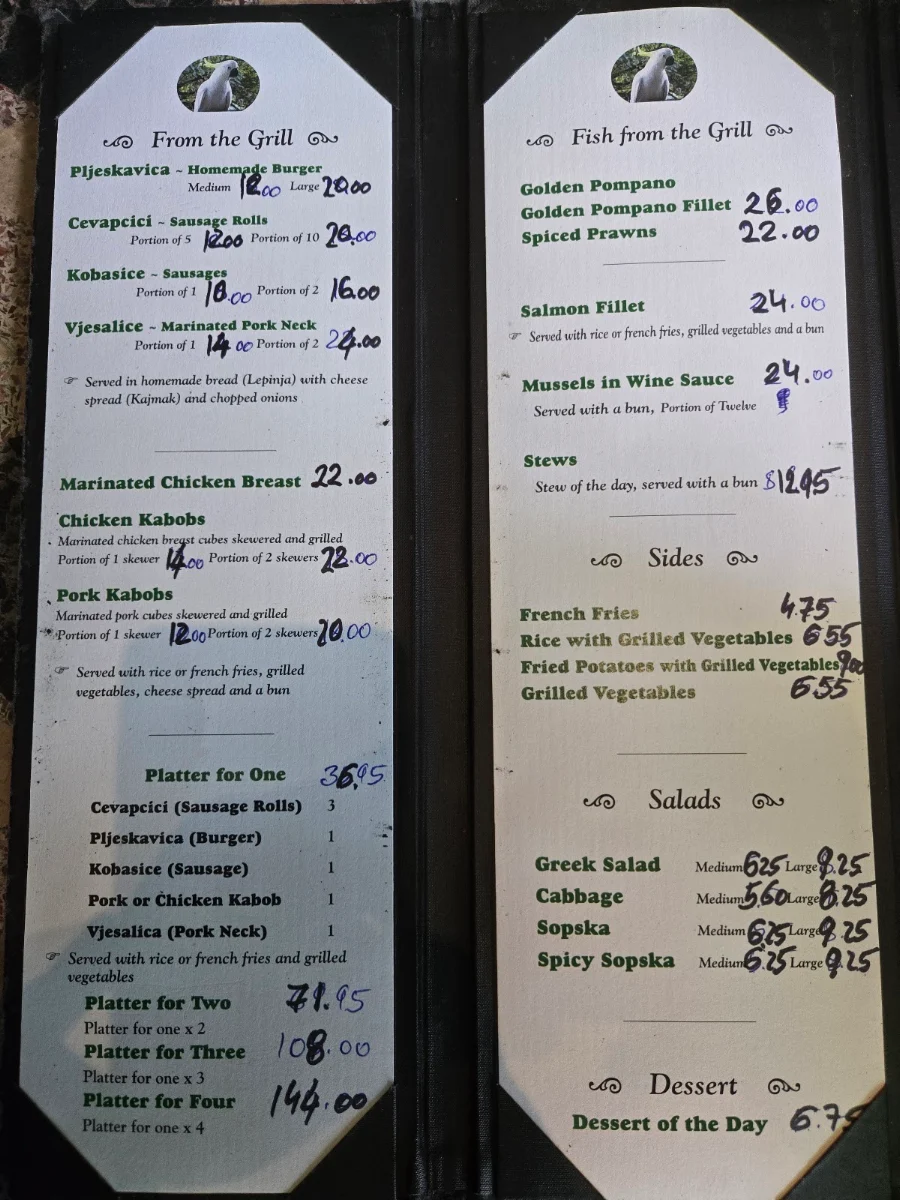 From the Grill
Pljeskavica ~ Homemade Burger
Medium 12.00 Large 20.00
Cevapcici ~ Sausage Rolls
Portion of 5 12.00 Portion of 10 20.00
Kobasice ~ Sausages
Portion of 1 10.00 Portion of 2 16.00
Vjesalice ~ Marinated Pork Neck
Portion of 1 14.00 Portion of 2 24.00
Served in homemade bread (Lepinja) with cheese
spread (Kajmak) and chopped onions
Marinated Chicken Breast 22.00
Chicken Kabobs
Marinated chicken breast cubes skewered and grilled
Portion of 1 skewer 14.00 Portion of 2 skewers 22.00
Pork Kabobs
Marinated pork cubes skewered and grilled
Portion of 1 skewer 12.00 Portion of 2 skewers 20.00
Served with rice or french fries, grilled
vegetables, cheese spread and a bun
Platter for One 36.95
Cevapcici (Sausage Rolls) 3
Pljeskavica (Burger) 1
Kobasice (Sausage) 1
Pork or Chicken Kabob 1
Vjesalica (Pork Neck) 1
Served with rice or french fries and grilled
vegetables
Platter for Two 71.95
Platter for one x 2
Platter for Three 108.00
Platter for one x 3
Platter for Four 144.00
Platter for one x 4
Fish from the Grill
Golden Pompano
Golden Pompano Fillet 26.00
Spiced Prawns 22.00
Salmon Fillet 24.00
Served with rice or french fries, grilled vegetables and a bun
Mussels in Wine Sauce 24.00
Served with a bun, Portion of Twelve
Stews
Stew of the day, served with a bun $12.95
Sides
French Fries 4.75
Rice with Grilled Vegetables 6.55
Fried Potatoes with Grilled Vegetables
Grilled Vegetables 6.55
Salads
Greek Salad Medium 6.25 Large 9.25
Cabbage Medium 5.60 Large 8.25
Sopska Medium 6.25 Large 9.25
Spicy Sopska Medium 6.25 Large 9.25
Dessert
Dessert of the Day 6.75